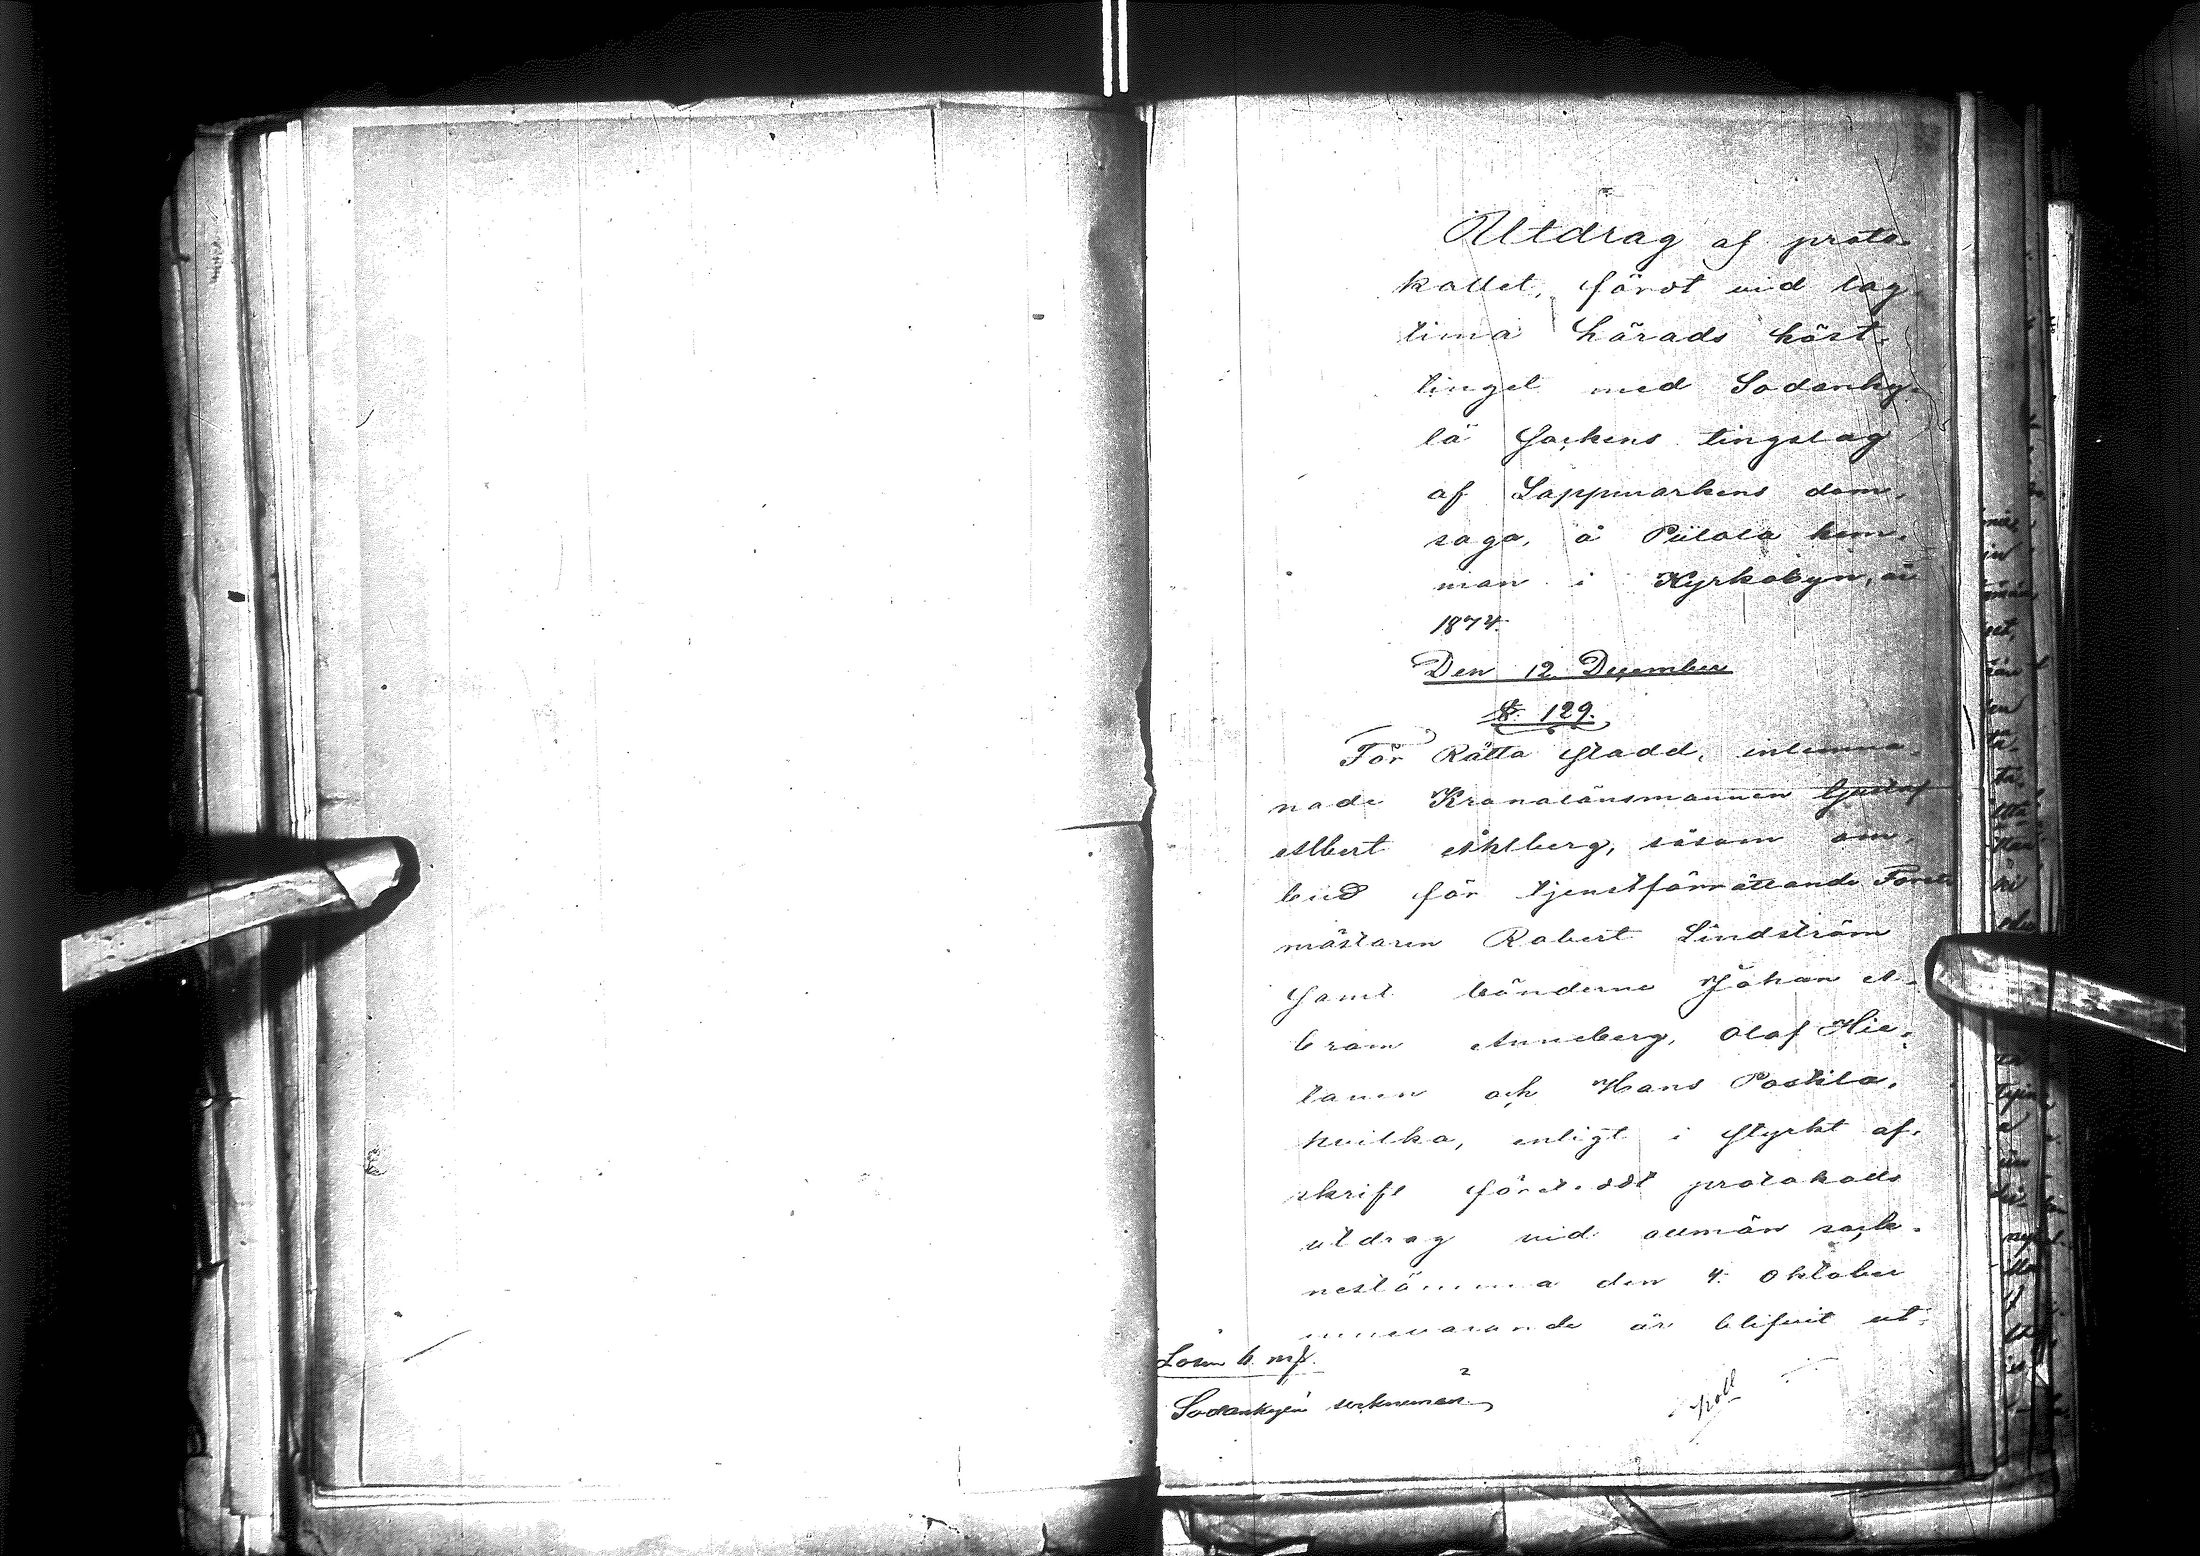 Utdrag af proto-
kollet, fördt vid lag-
tima härads höst-
tinget med Sodanky-
lä Sockens tingslag
af Lappmarkens dom-
saga, å Piilola hem-
man i Kyrkobyn, år
1874.
Den 12 December
§ 129.
För Rätta stadd, inlemna-
nade Kronolänsmannen Gustaf
Albert Ahlberg, såsom om-
bud för tjenstförrättande Forst-
mästaren Robert Lindström
samt bönderne Johan A-
bram Anneberg, Olof Hie-
tanen och Hans Postila,
hvilka, enligt i styrkt af-
skrift företedt protokolls
utdrag vid allmän socke-
nestämma den 4 Oktober
innevarande år blifvit ut-
Lösen 6 mk
Sodankylä sockneman
koll